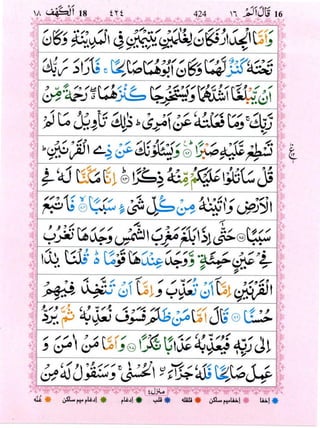 ١٨ اَلۡكَهۡف 18 ٤٢٤ 424 قَالَ اَلَمۡ ١٦ 16
وَاَمَّا الۡجِدَارُ فَكَانَ لِغُلٰمَيۡنِ يَتِيۡمَيۡنِ فِى الۡمَدِيۡنَةِ وَكَانَ
تَحۡتَهٗ كَنۡزٌ لَّهُمَا وَكَانَ اَبُوۡهُمَا صَالِحًا ۚ فَاَرَادَ رَبُّكَ
اَنۡ يَّبۡلُغَاۤ اَشُدَّهُمَا وَيَسۡتَخۡرِجَا كَنۡزَهُمَا ۖ رَحۡمَةً مِّنۡ
رَّبِّكَ ۚ وَمَا فَعَلۡتُهٗ عَنۡ اَمۡرِىۡ ؕ ذٰلِكَ تَاۡوِيۡلُ مَا لَمۡ
تَسۡطِعْ عَّلَيۡهِ صَبۡرًا ؕ﴿۸۲﴾ وَيَسۡـَٔلُوۡنَكَ عَنۡ ذِى الۡقَرۡنَيۡنِ ؕ
قُلۡ سَاَتۡلُوۡا عَلَيۡكُمۡ مِّنۡهُ ذِكۡرًا ؕ﴿۸۳﴾ اِنَّا مَكَّنَّا لَهٗ فِى
الۡاَرۡضِ وَاٰتَيۡنٰهُ مِنۡ كُلِّ شَىۡءٍ سَبَبًا ۙ﴿۸۴﴾ فَاَتۡبَعَ
سَبَبًا ﴿۸۵﴾ حَتّٰٓى اِذَا بَلَغَ مَغۡرِبَ الشَّمۡسِ وَجَدَهَا تَغۡرُبُ
فِىۡ عَيۡنٍ حَمِئَةٍ وَّوَجَدَ عِنۡدَهَا قَوۡمًا ؕ قُلۡنَا يٰذَا
الۡقَرۡنَيۡنِ اِمَّاۤ اَنۡ تُعَذِّبَ وَاِمَّاۤ اَنۡ تَتَّخِذَ فِيۡهِمۡ
حُسۡنًا ﴿۸۶﴾ قَالَ اَمَّا مَنۡ ظَلَمَ فَسَوۡفَ نُعَذِّبُهٗ ثُمَّ يُرَدُّ
اِلٰى رَبِّهٖ فَيُعَذِّبُهٗ عَذَابًا نُّكۡرًا ﴿۸۷﴾ وَاَمَّا مَنۡ اٰمَنَ وَ
عَمِلَ صَالِحًـا فَلَهٗ جَزَآءَ ۨالۡحُسۡنٰى ۚ وَسَنَقُوۡلُ لَهٗ مِنۡ
منزل ٤
اخفا اخفا میم ساکن قلقلہ قلب ادغام ادغام میم ساکن غنّہ